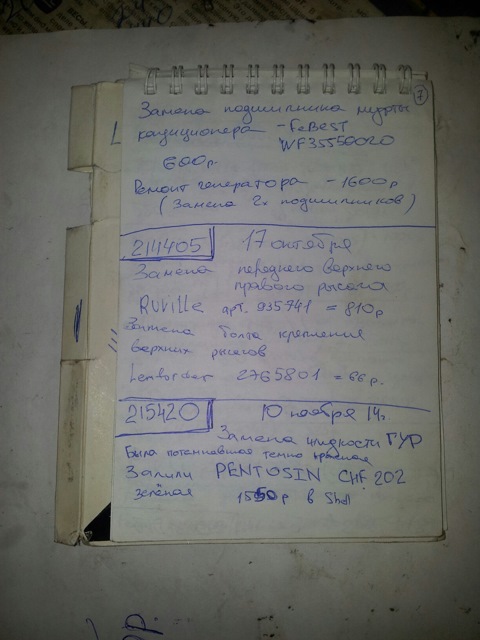 7
Замена подшипника муфты
кондиционера - FeBEST
WF35550020
600р.
Ремонт генератора - 1600р
(Замена 2х подшипников)
211405 17 октября
Замена переднего верхнего
правого рычага
Ruville арт. 935741 = 810р
Замена болта крепления
верхних рычагов
Lemforder 2765801 = 66р.
215420 10 ноября 14г.
Замена жидкости ГУР
Была потемневшая темно красная
Залили PENTOSIN CHF 202
зелёная 1550р в Shell